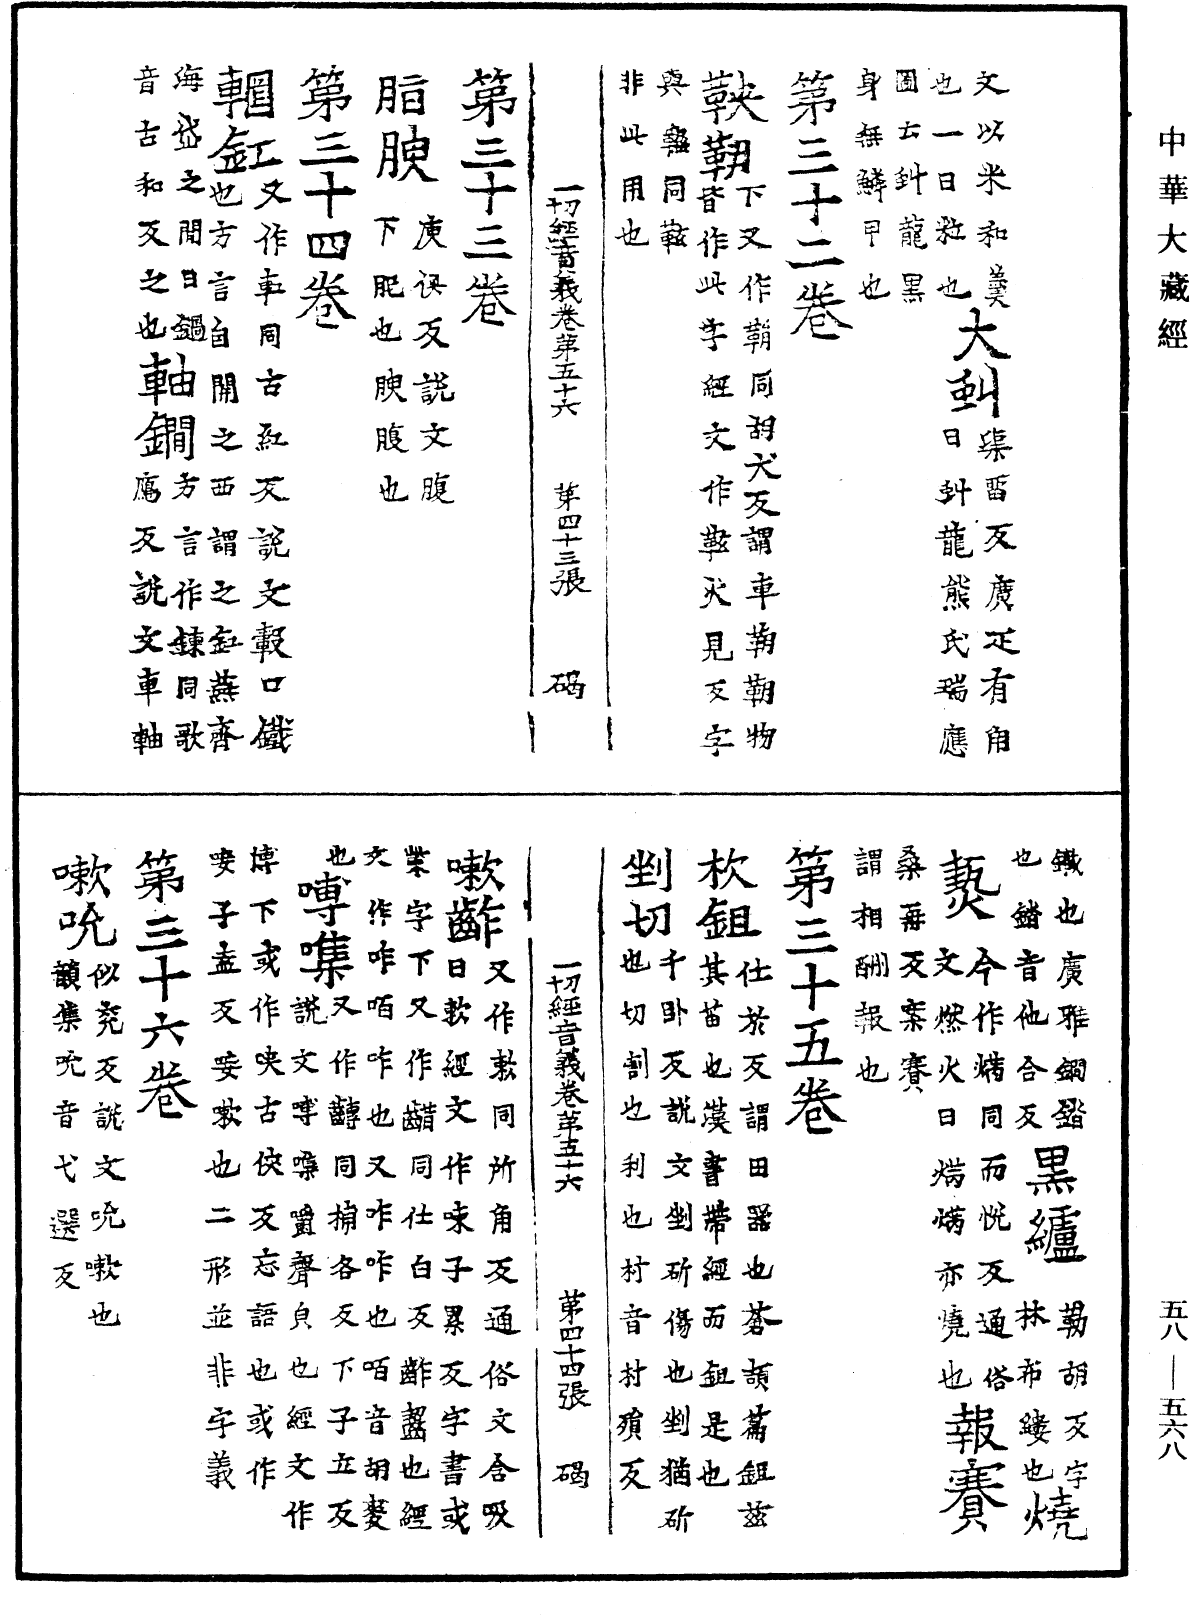 中華大藏經
文以米和羹
也一曰粒也
大虯渠留反廣疋有角
曰虯龍熊氏瑞應
圖云虯龍黑
身無鱗甲也
第三十二卷
鞅靷下又作鞙同胡犬反謂車鞙靷物
皆作此字經文作鞬火見反字
與㡓同鞬
非此用也
一切經音義卷第五十六 第四十三張 碣
第三十三卷
脂腴庾俱反說文腹
下肥也腴腹也
第三十四卷
輥釭又作車同古紅反說文轂口鐵
也方言自關之西謂之釭燕齊
海岱之間曰鍋
音古和反之也
軸鐧方言作鍊同歌
鴈反說文車軸
鐵也廣雅鋼鍇
也鍺音他合反
黑纑勒胡反字
林布縷也
燒
爇今作焫同而悅反通俗
文燃火曰焫焫亦燒也
報賽
桑再反案賽
謂相酬報也
第三十五卷
杴鉏仕於反謂田器也蒼頡篇鉏茲
其苗也漢書帶經而鉏是也
剉切千卧反說文剉斫傷也剉猶斫
也切割也利也村音村殞反
一切經音義卷第五十六 第四十四張 碣
嗽齰又作欶同所角反通俗文含吸
曰欶經文作㖩子累反字書或
業字下又作齰同仕白反齰齧也經
文作咋咟咋也又咋咋也咟音胡麥
也
嗙噍又作䶈同捕各反下子立反
說文嗙噍㗱聲貞也經文作
博下或作㖡古俠反忘語也或作
唼子盍反唼嗽也二形並非字義
第三十六卷
嗽吮似兖反說文吮嗽也
韻集吮音弋選反
五八—五六八